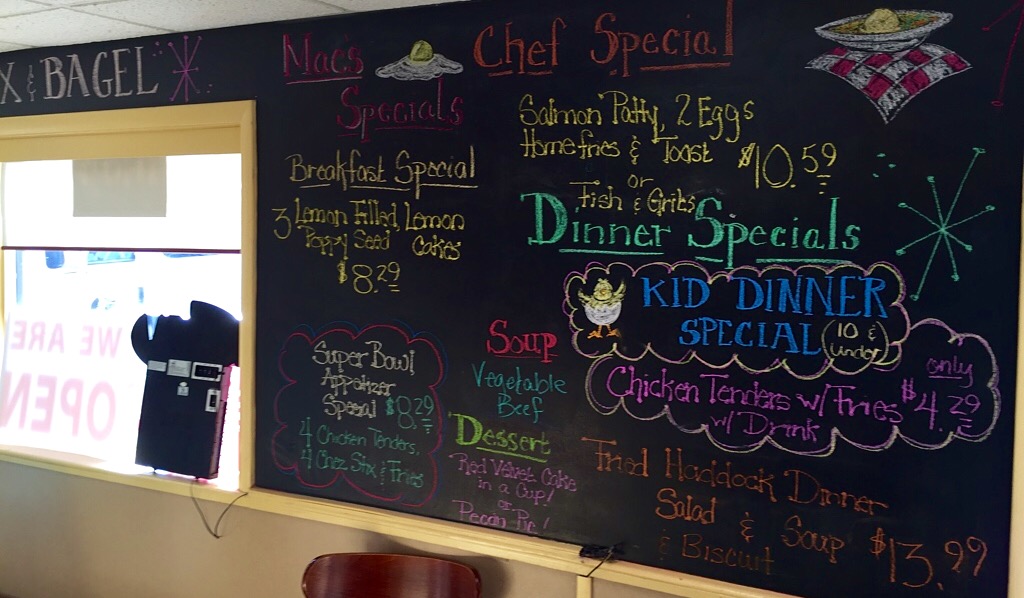 X & BAGEL
Macs
Specials
Breakfast Special
3 Lemon Filled, Lemon
Poppy Seed Cakes
$8.29
Super Bowl
Appatizer
Spesial $8.29
4 Chicken Tenders,
4 Chez Stix & Fries
Chef Special
Salmon Patty, 2 Eggs
Homefries & Toast $10.59
or
Fish & Grits
Dinner Specials
KID DINNER
SPECIAL 10 &
under
only
Chicken Tenders w/ Fries $4.29
w/ Drink
Soup
Vegetable
Beef
Dessert
Red Velvet Cake
in a Cup!
or
Pecan Pie!
Fried Haddock Dinner
Salad & Soup $13.99
& Biscuit
WE ARE
OPEN